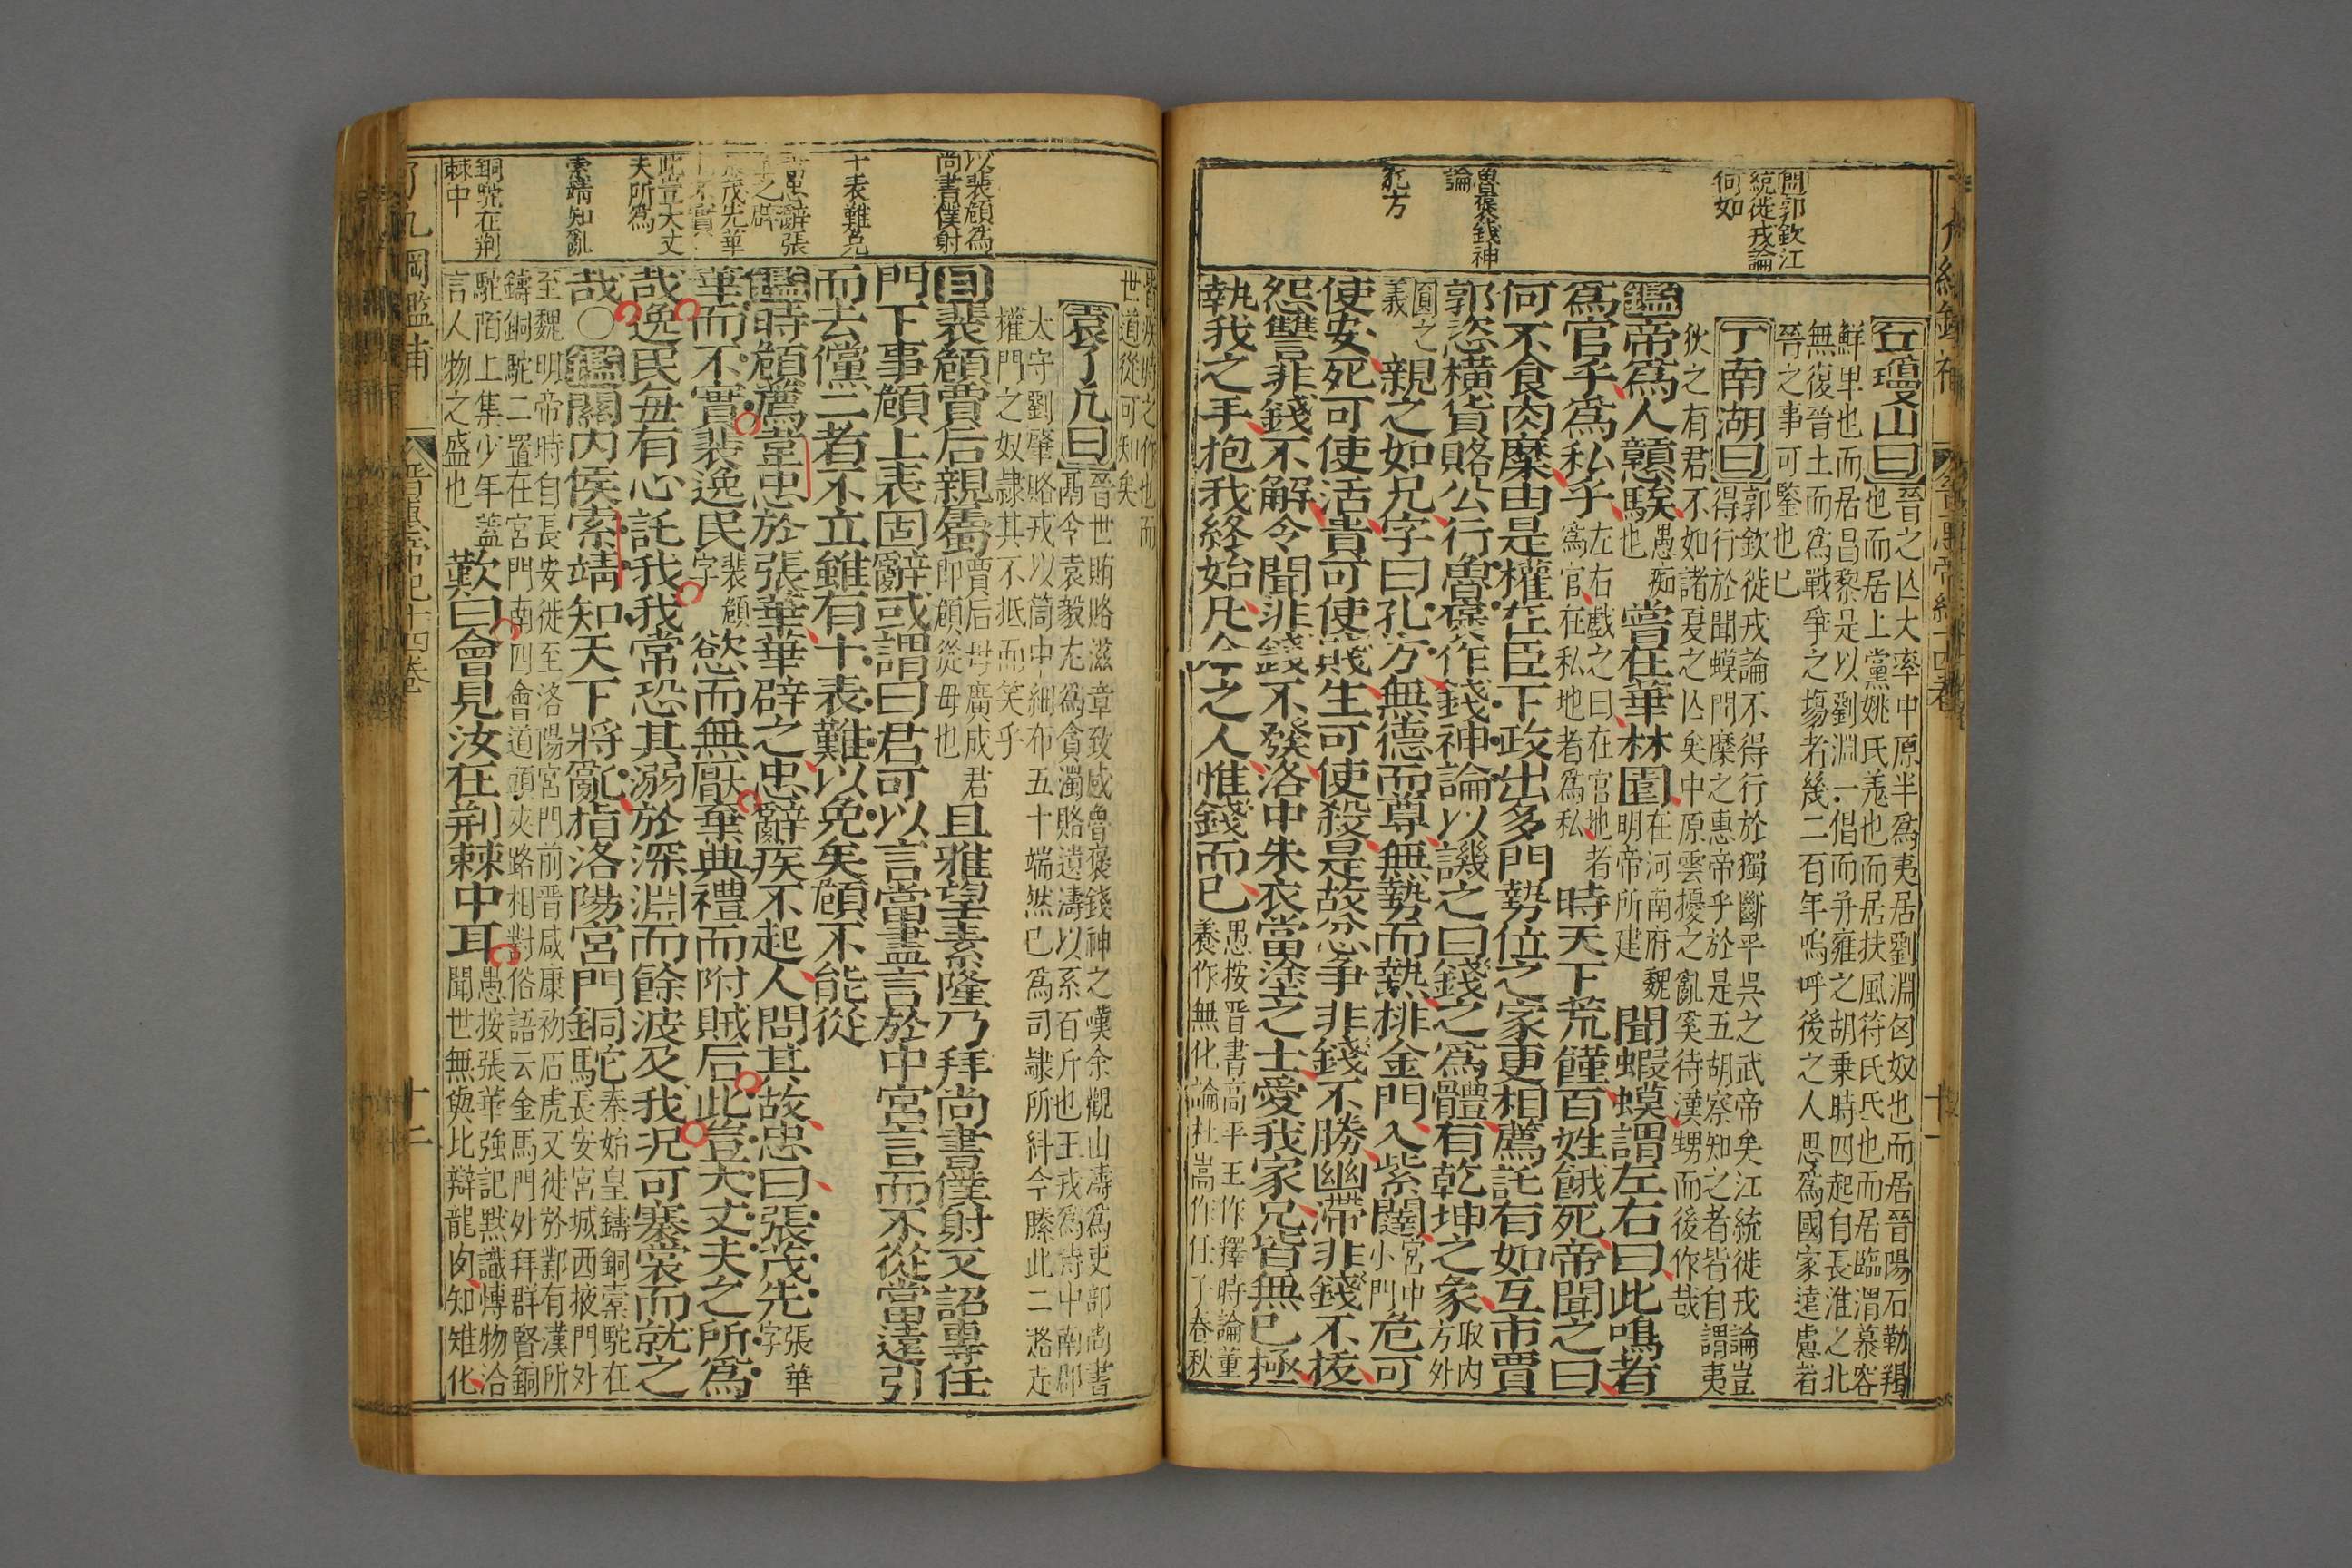 問郭欽江
統徙戎論
何如
魯褒錢神
論
孔方
丘瓊山曰
晉之亾大率中原半爲夷居劉淵匈奴也而居晉陽石勒羯
也而居上黨姚氏羌也而居扶風符氏氐也而居臨渭慕容
鮮卑也而居昌黎是以劉淵一倡而并雍之胡乗時四起自長淮之北
無復晉土而爲戰爭之塲者幾二百年嗚呼後之人思爲國家遠慮者
晉之事可鑒也已
丁南湖曰
郭欽徙戎論不得行於獨斷平吳之武帝矣江統徙戎論豈
得行於聞蟆門糜之惠帝乎於是五胡察知之者皆自謂夷
狄之有君不如諸夏之亾矣中原雲擾之亂奚待漢甥而後作哉
鑑帝爲人戇騃
愚痴
也
嘗在華林園
在河南府魏
明帝所建
聞蝦蟆謂左右曰此鳴者
爲官乎爲私乎
左右戲之曰在官地者
爲官在私地者爲私
時天下荒饉百姓餓死帝聞之曰
何不食肉糜由是權在臣下政出多門勢位之家更相薦託有如互市賈
郭恣橫貨賂公行魯褒作錢神論以譏之曰錢之爲體有乾坤之象
取内
方外
圓之
義
親之如兄字曰孔方無德而尊無勢而熱排金門入紫闥
宮中
小門
危可
使安死可使活貴可使賤生可使殺是故忿爭非錢不勝幽滯非錢不拔
怨讐非錢不解令聞非錢不發洛中朱衣當塗之士愛我家兄皆無已極
執我之手抱我終始凡今之人惟錢而已
愚按晉書高平王作釋時論董
養作無化論杜嵩作任子春秋
皆疾時之作也而
世道從可知矣
袁了凡曰
晉世賄賂滋章致感魯褒錢神之嘆余觀山濤爲吏部尚書
鬲令袁毅尢爲貪濁賂遺濤以系百斤也王戎爲侍中南郡
太守劉肇賂戎以筒中細布五十端然已爲司隸所糾今滕此二賂走
權門之奴隷其不抵而笑乎
以裴頠爲
尚書僕射
十表難免
韋忠辭張
華之辟
張茂先華
而不實
此豈大丈
夫所爲
索靖知亂
銅駝在荆
棘中
目裴頠賈后親屬
賈后母廣成君
即頠從母也
且雅望素隆乃拜尚書僕射又詔專任
門下事頠上表固辭或謂曰君可以言當盡言於中宮言而不從當遠引
而去儻二者不立雖有十表難以免矣頠不能從
鑑時頠薦韋忠於張華華辟之忠辭疾不起人問其故忠曰張茂先
張華
字
華而不實裴逸民
裴頠
字
慾而無厭棄典禮而附賊后此豈大丈夫之所爲
哉逸民每有心託我我常恐其溺於深淵而餘波及我況可褰裳而就之
哉○鑑關内侯索靖知天下將亂指洛陽宮門銅駝
秦始皇鑄銅橐駝在
長安宮城西掖門外
至魏明帝時自長安徙至洛陽宮門前晉咸康初石虎又徙於鄴有漢所
鑄銅駝二置在宮門南四會道頭夾路相對俗語云金馬門外拜群賢銅
駝陌上集少年蓋
言人物之盛也
歎曰會見汝在荆棘中耳
愚按張華強記黙識愽物洽
聞世無與比辯龍肉知雉化
了凡綱鑑補
晋惠帝紀十四卷
十二